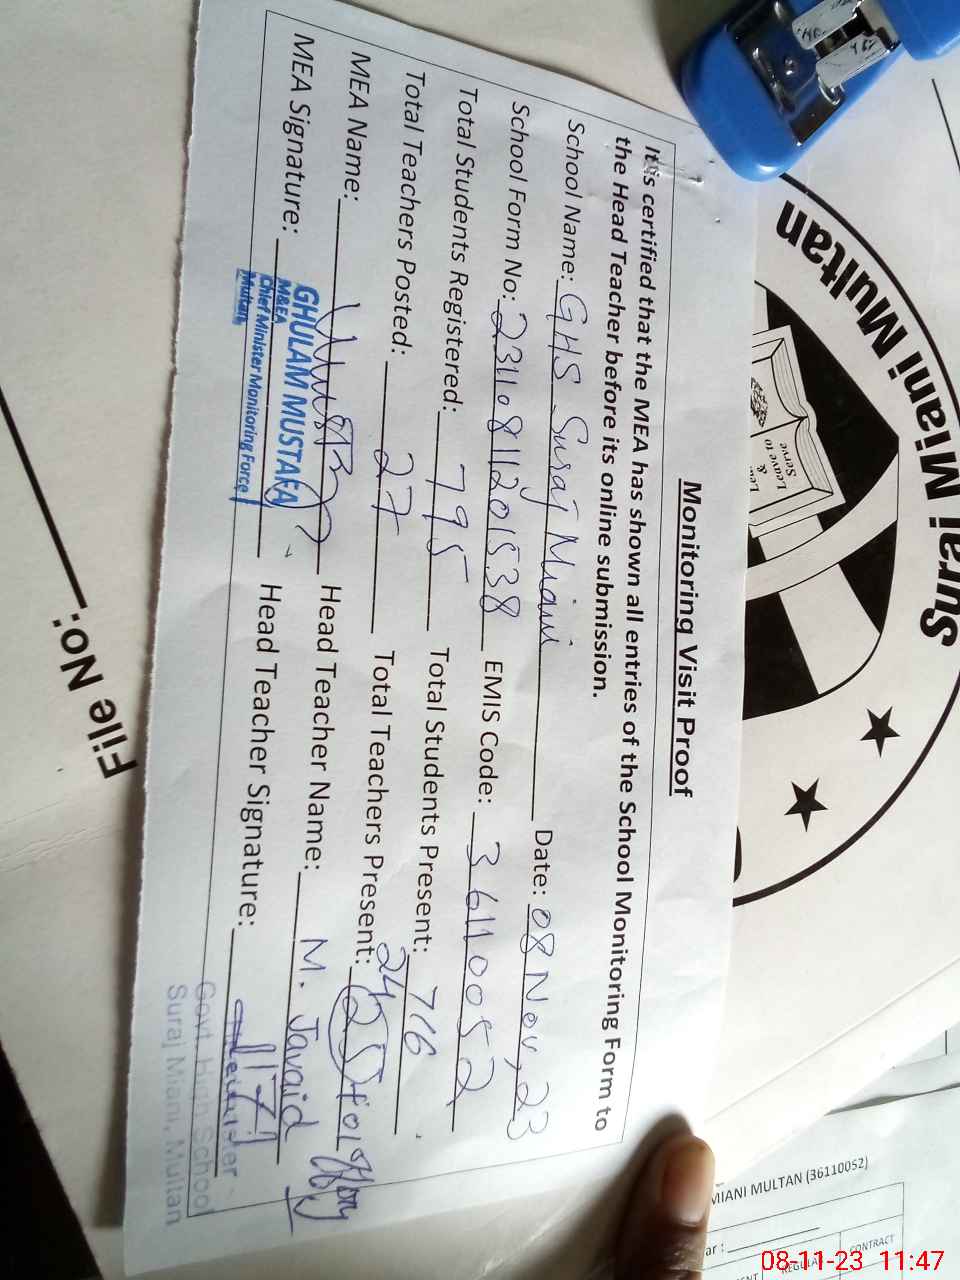 Monitoring Visit Proof
It is certified that the MEA has shown all entries of the School Monitoring Form to
the Head Teacher before its online submission.
School Name: GHS Suraj Miani Date: 08 Nov, 23
School Form No: 23110811201538 EMIS Code: 36110052
Total Students Registered: 795 Total Students Present: 716
Total Teachers Posted: 27 Total Teachers Present: 24 25
MEA Name: Head Teacher Name: M. Javaid
MEA Signature: Head Teacher Signature:
GHULAM MUSTAFA
M&EA
Chief Minister Monitoring Force
Multan
Govt. High School
Suraj Miani, Multan
File No:
Suraj Miani Multan
Leave to
Serve
&
MIANI MULTAN (36110052)
ar :
REGULA
CONTRACT
08-11-23 11:47